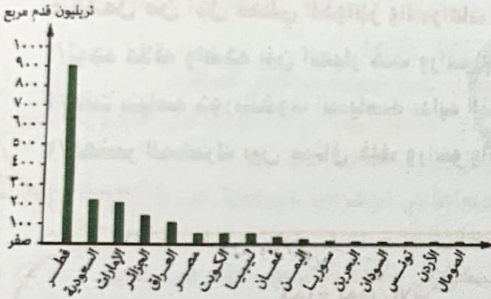 تريليون قدم مربع
١٠٠٠
٩٠٠
٨٠٠
٧٠٠
٦٠٠
٥٠٠
٤٠٠
٣٠٠
٢٠٠
١٠٠
صفر
قطر
السعودية
الإمارات
الجزائر
العراق
مصر
الكويت
ليبيا
عمان
اليمن
سوريا
البحرين
السودان
تونس
الأردن
الصومال